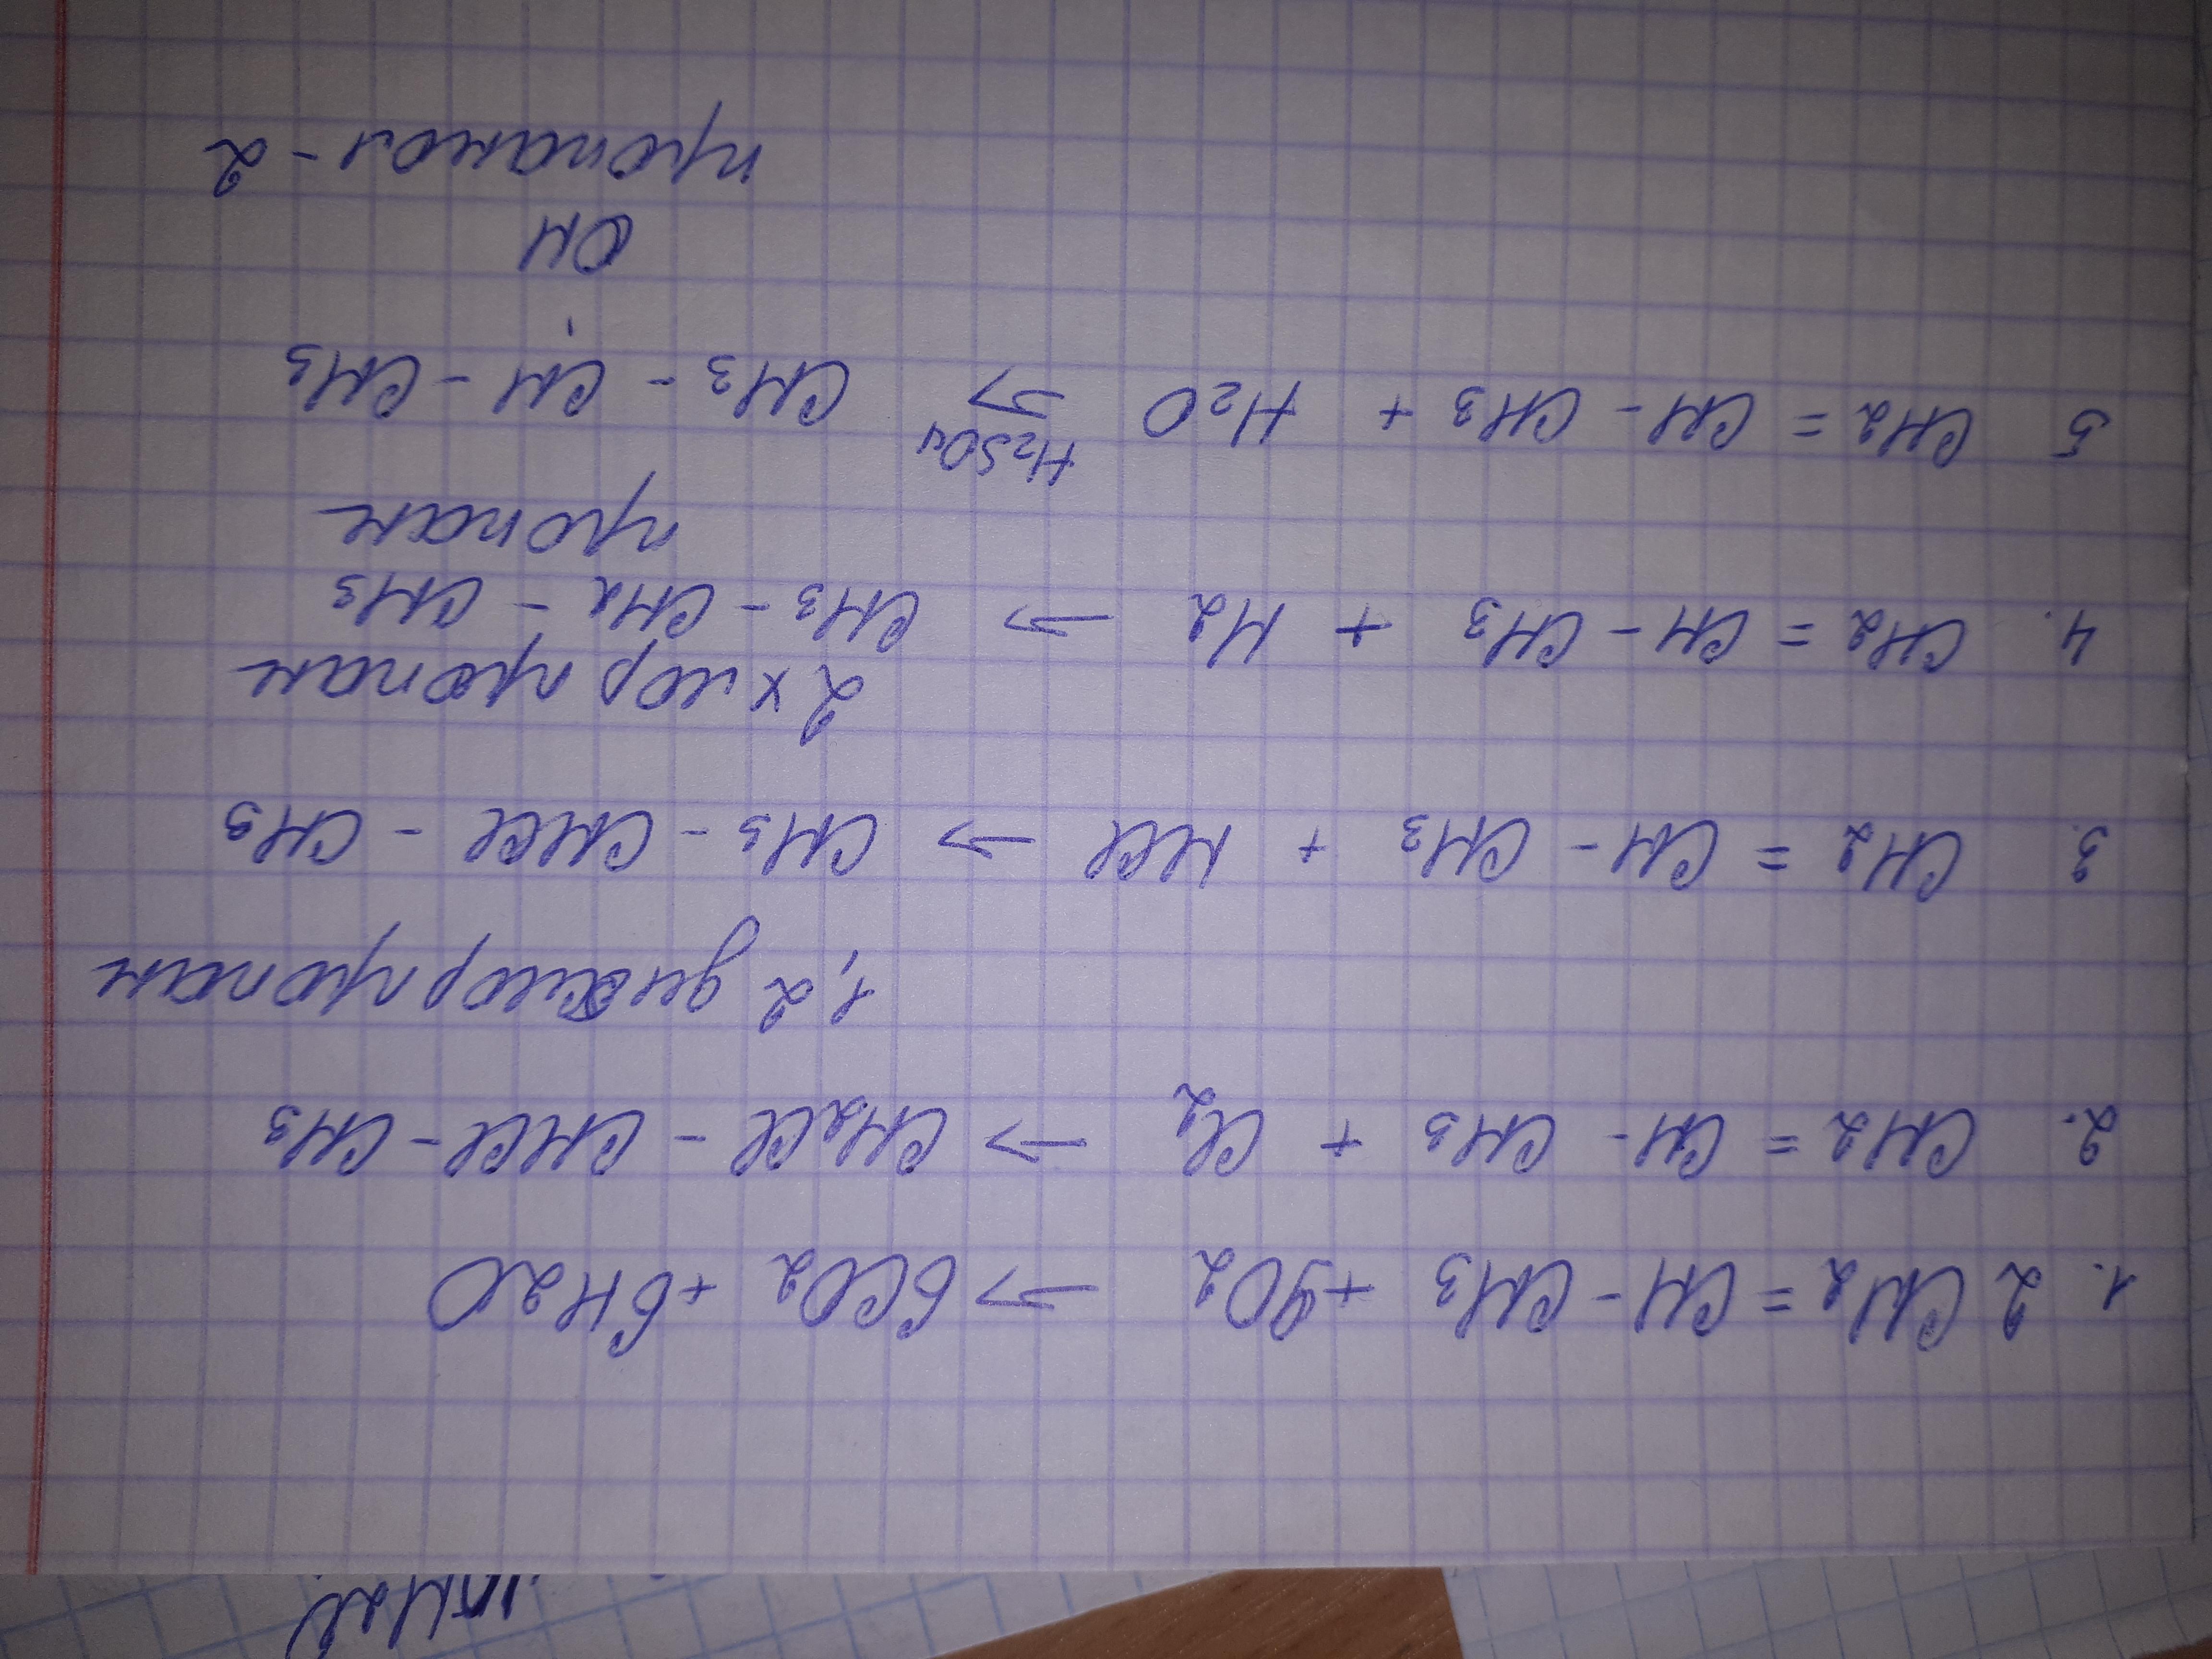 1. 2CH2 = CH - CH3 + 9O2 → 6CO2 + 6H2O
2. CH2 = CH - CH3 + Cl2 → CH2Cl - CHCl - CH3
1,2 дихлорпропан
3. CH2 = CH - CH3 + HCl → CH3 - CHCl - CH3
2 хлорпропан
4. CH2 = CH - CH3 + H2 → CH3 - CH2 - CH3
пропан
H2SO4
5 CH2 = CH - CH3 + H2O → CH3 - CH - CH3
OH
пропанол - 2